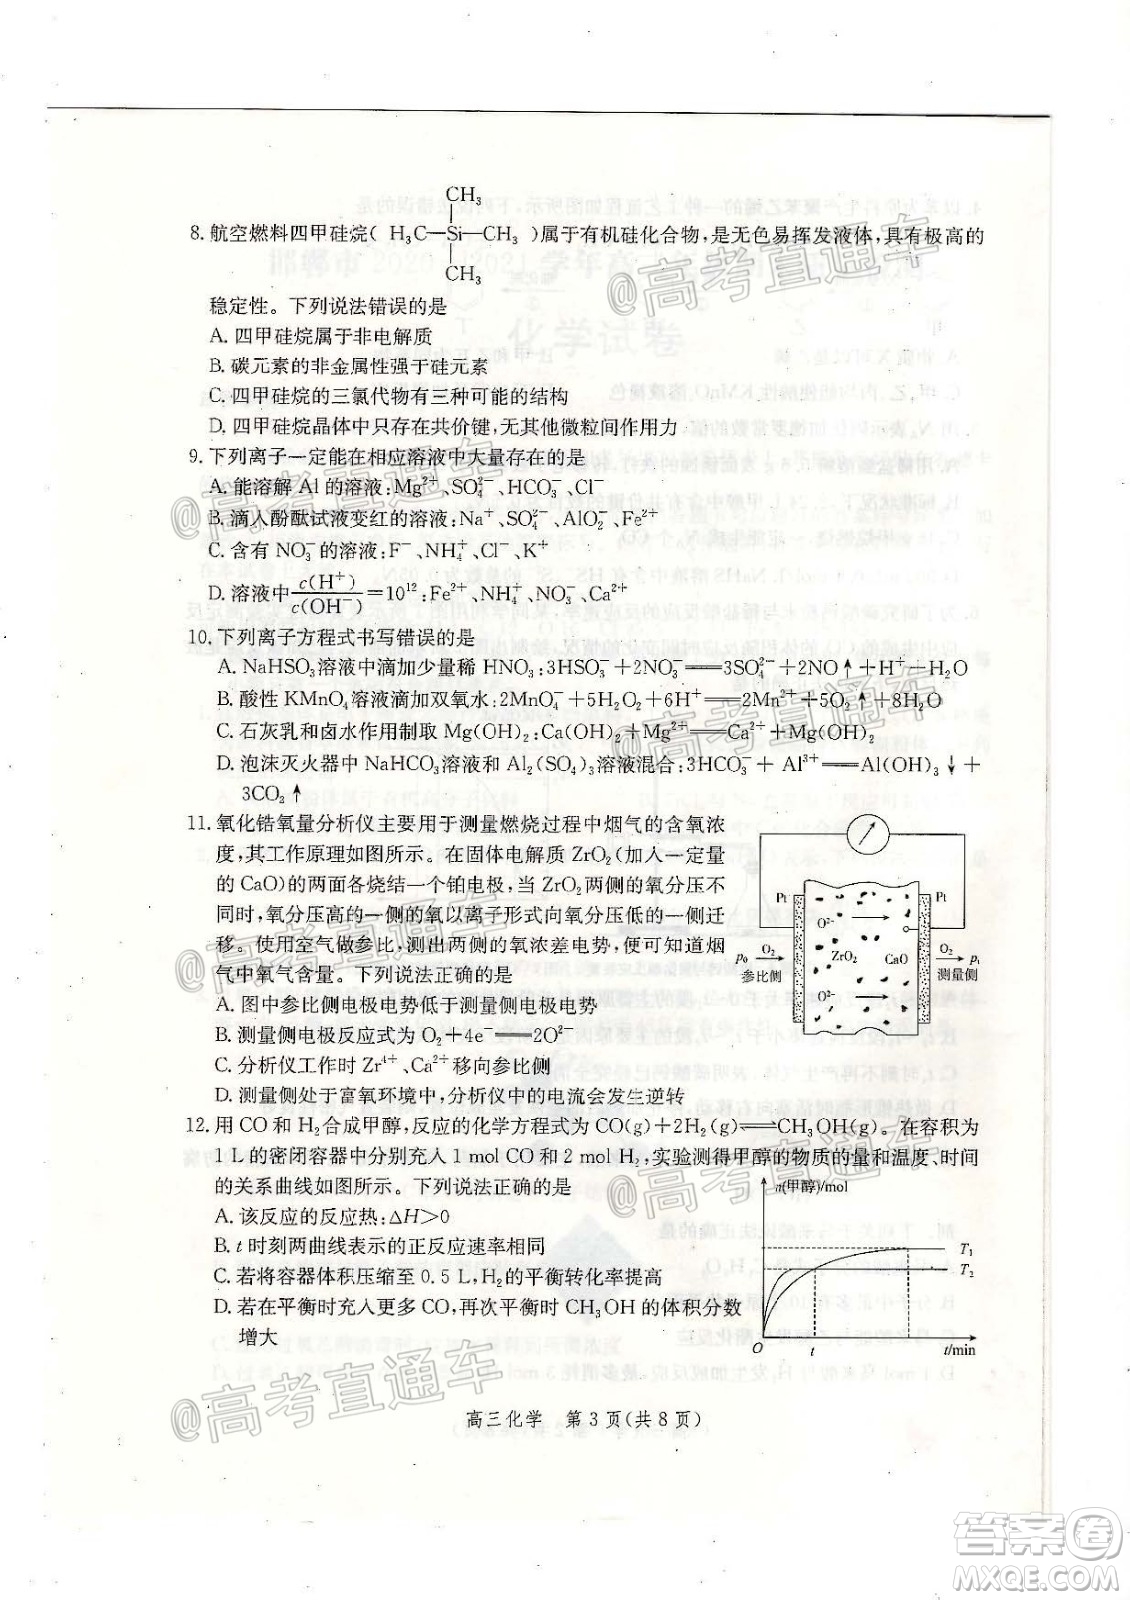 CH₃
8. 航空燃料四甲硅烷( H₃C—Si—CH₃ )属于有机硅化合物,是无色易挥发液体,具有极高的
CH₃
稳定性。下列说法错误的是
A. 四甲硅烷属于非电解质
B. 碳元素的非金属性强于硅元素
C. 四甲硅烷的三氯代物有三种可能的结构
D. 四甲硅烷晶体中只存在共价键,无其他微粒间作用力
9. 下列离子一定能在相应溶液中大量存在的是
A. 能溶解 Al 的溶液:Mg²⁺、SO₄²⁻、HCO₃⁻、Cl⁻
B. 滴入酚酞试液变红的溶液:Na⁺、SO₄²⁻、AlO₂⁻、Fe²⁺
C. 含有 NO₃⁻ 的溶液:F⁻、NH₄⁺、Cl⁻、K⁺
D. 溶液中 c(H⁺)/c(OH⁻) =10¹²:Fe²⁺、NH₄⁺、NO₃⁻、Ca²⁺
10. 下列离子方程式书写错误的是
A. NaHSO₃ 溶液中滴加少量稀 HNO₃:3HSO₃⁻+2NO₃⁻══3SO₄²⁻+2NO↑+H⁺+H₂O
B. 酸性 KMnO₄ 溶液滴加双氧水:2MnO₄⁻+5H₂O₂+6H⁺══2Mn²⁺+5O₂↑+8H₂O
C. 石灰乳和卤水作用制取 Mg(OH)₂:Ca(OH)₂+Mg²⁺══Ca²⁺+Mg(OH)₂
D. 泡沫灭火器中 NaHCO₃ 溶液和 Al₂(SO₄)₃ 溶液混合:3HCO₃⁻+Al³⁺══Al(OH)₃↓+
3CO₂↑
11. 氧化锆氧量分析仪主要用于测量燃烧过程中烟气的含氧浓
度,其工作原理如图所示。在固体电解质 ZrO₂(加入一定量
的 CaO)的两面各烧结一个铂电极,当 ZrO₂ 两侧的氧分压不
同时,氧分压高的一侧的氧以离子形式向氧分压低的一侧迁
移。使用空气做参比,测出两侧的氧浓差电势,便可知道烟
气中氧气含量。下列说法正确的是
A. 图中参比侧电极电势低于测量侧电极电势
B. 测量侧电极反应式为 O₂+4e⁻══2O²⁻
C. 分析仪工作时 Zr⁴⁺、Ca²⁺ 移向参比侧
D. 测量侧处于富氧环境中,分析仪中的电流会发生逆转
Pt Pt
O²⁻
p₀ O₂ ZrO₂ CaO O₂ p₁
参比侧 测量侧
O²⁻
12. 用 CO 和 H₂ 合成甲醇,反应的化学方程式为 CO(g)+2H₂(g)⇌CH₃OH(g)。在容积为
1 L 的密闭容器中分别充入 1 mol CO 和 2 mol H₂,实验测得甲醇的物质的量和温度、时间
的关系曲线如图所示。下列说法正确的是
A. 该反应的反应热:ΔH>0
B. t 时刻两曲线表示的正反应速率相同
C. 若将容器体积压缩至 0.5 L,H₂ 的平衡转化率提高
D. 若在平衡时充入更多 CO,再次平衡时 CH₃OH 的体积分数
增大
n(甲醇)/mol
T₁
T₂
O t t/min
高三化学 第 3 页(共 8 页)
@高考直通车
@高考直通车
@高考直通车
@高考直通车
@高考直通车
@高考直通车
答案卷
MXQE.COM